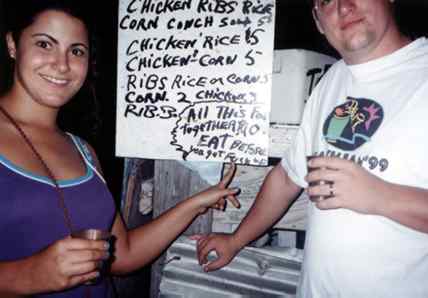 CHICKEN RIBS RICE
CORN CONCH SOUP 5
CHICKEN RICE $5
CHICKEN-CORN 5
RIBS RICE OR CORN 5
CORN 2 CHICKEN 3
RIB 3
ALL THIS FOO
TOGETHER
EAT BEFORE
YOU GET
'99